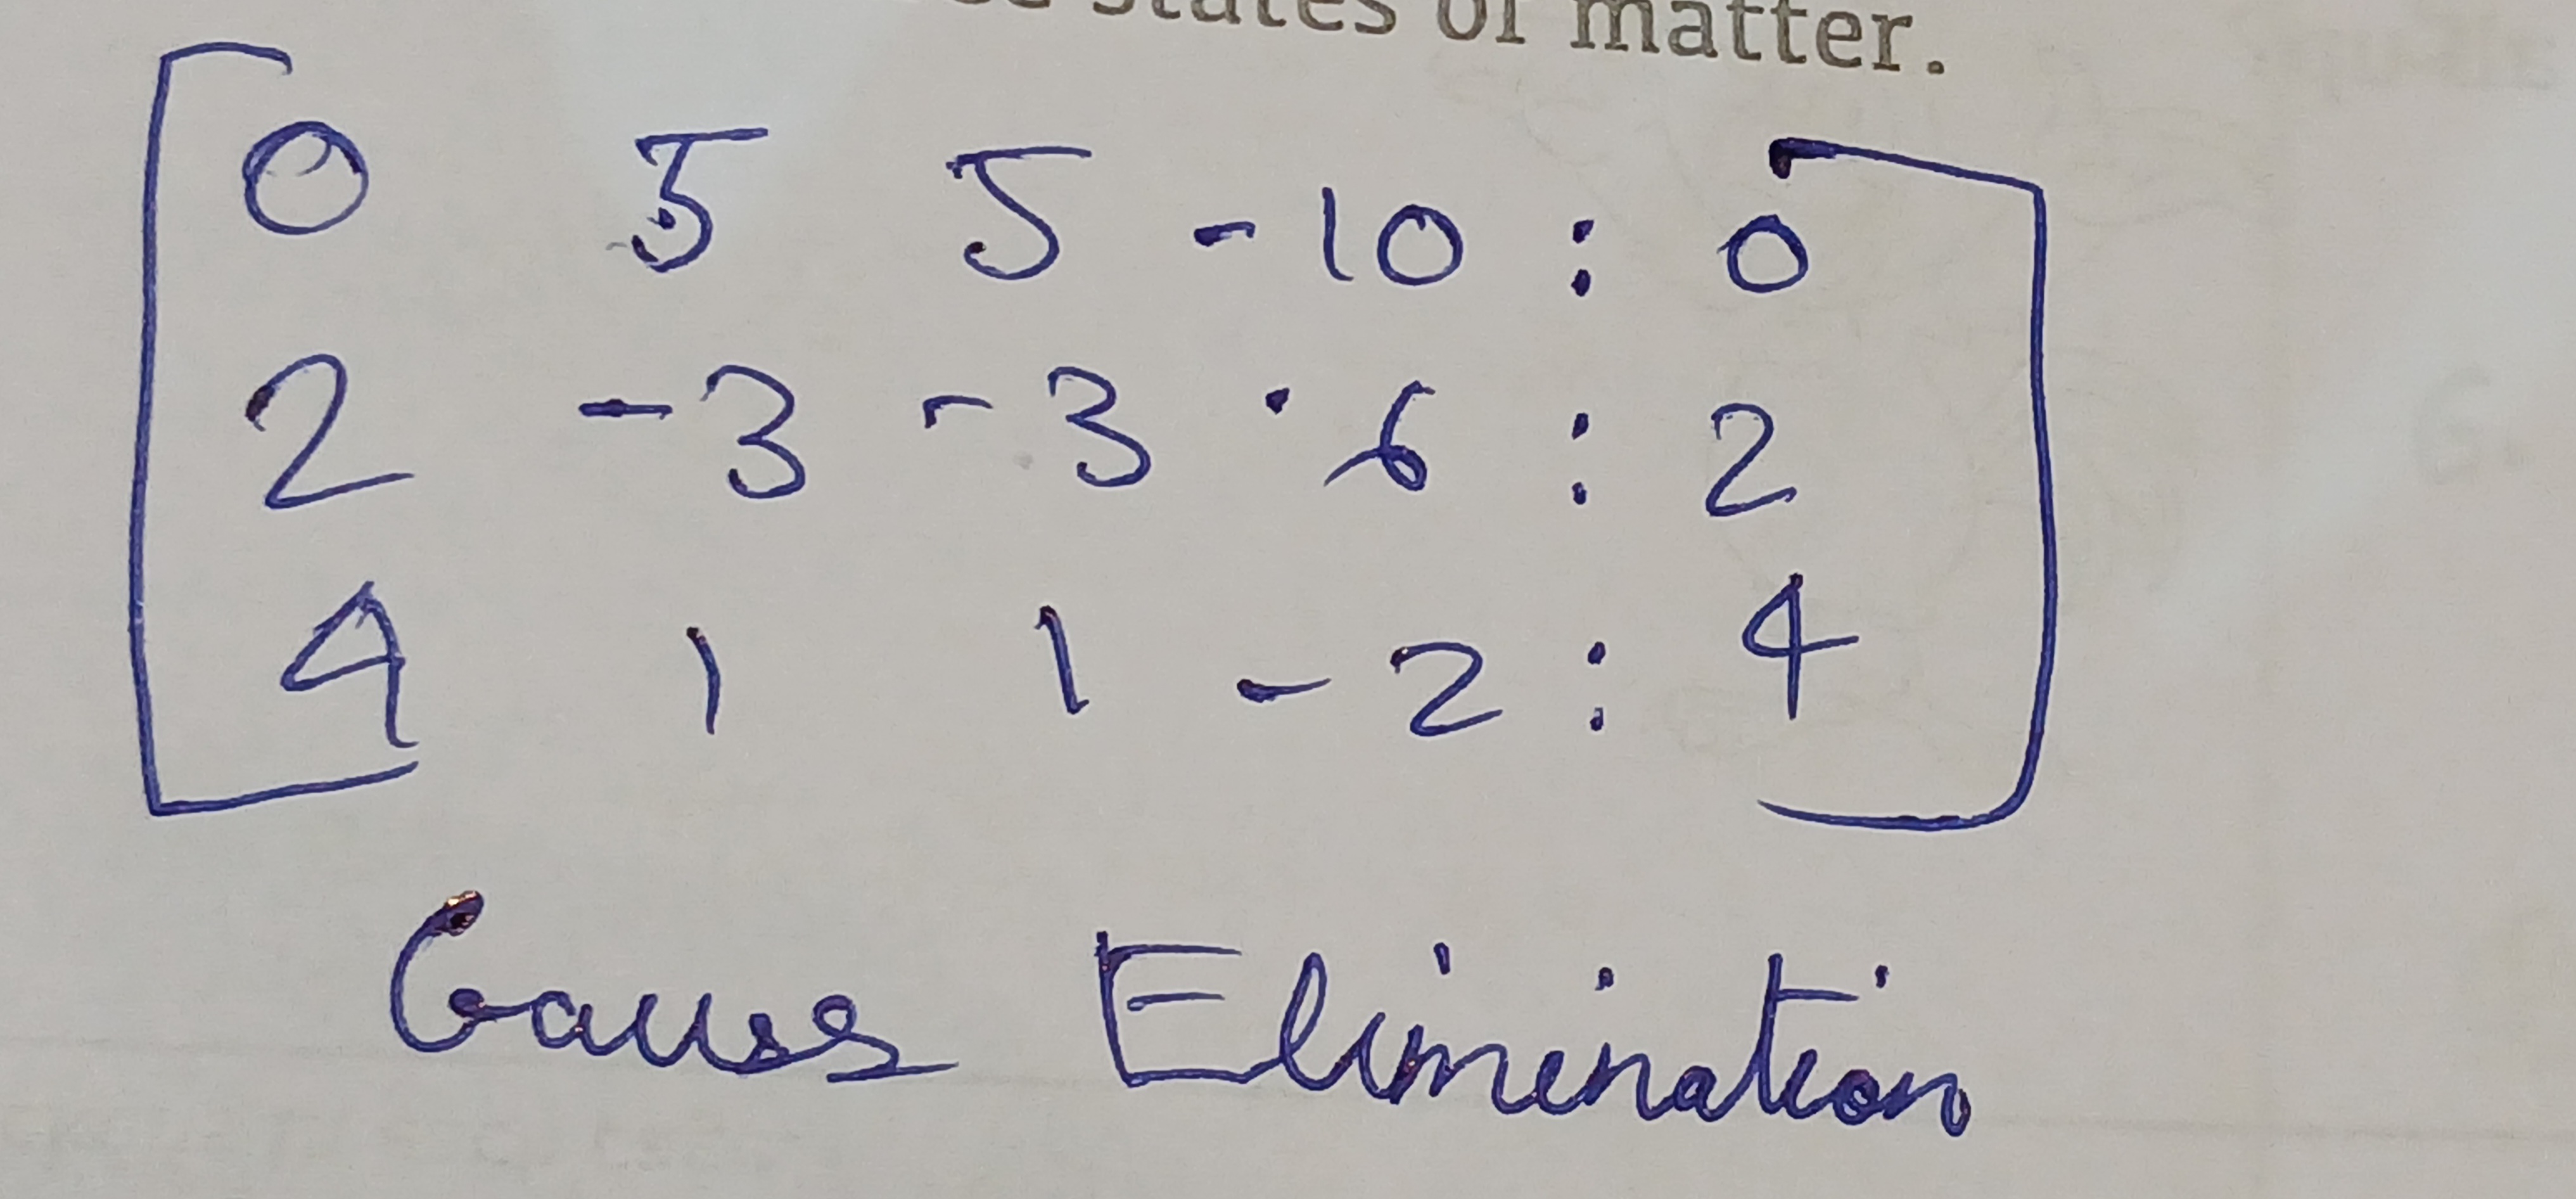 states of matter.
0 5 5 -10 : 0
2 -3 -3 · 6 : 2
4 1 1 -2 : 4
Gauss Elimination